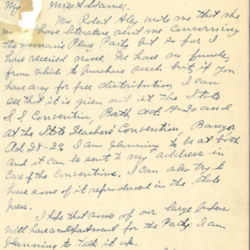 My Miss Addams:-
Mr Robert Aley wrote me that she
have literature sent me concerning
the Woman's Peace Party but so far I
have received none. We have no funds
from which to purchase such but if you
have any for free distribution, I can
see that it is given out at the State
S. S. Convention, Bath Oct 19-20 and
at the State Teachers' Convention, Bangor
Oct 28-29. I am planning to be at both
and it can be sent to my address in
care of the Conventions. I can also try to
have some of it reproduced in the State
press.
I hope that some of our large
will have a department for the Party. I am
planning to talk it up.